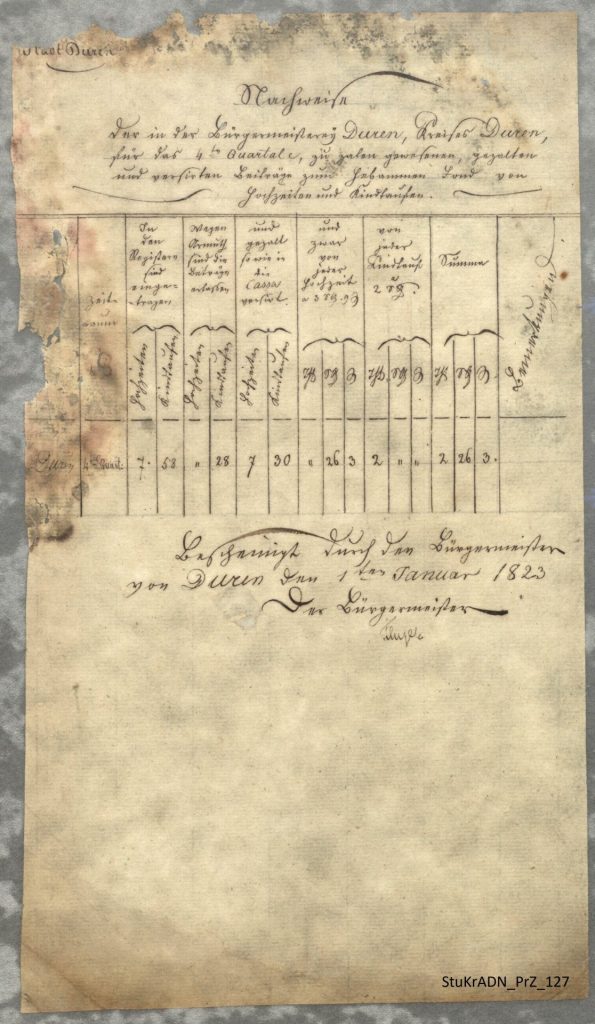 Stadt Düren
Nachweise
Der in der Bürgermeisterey Düren, Kreises Düren,
für das 4te Quartale, zu zalen gewesenen, gezalten
und versirten Beiträge zum Hebammen Fond von
Hochzeiten und Kindtaufen.
Zeit-
raum
In
den
Registern
sind
einge-
tragen
Hochzeiten
Kindtaufen
Wegen
Armuth
sind die
Beträge
erlassen
Hochzeiten
Kindtaufen
und
gezalt
sowie in
die
Cassa
versirt.
Hochzeiten
Kindtaufen
und
zwar
von
jeder
Hochzeit
a 3 Sg. 9 d
von
jeder
Kindtauf
a
2 Sg.
Summa
Bemerkungen
Düren 4te Quart. 7. 58 " 28 7 30 " 26 3 2 " " 2 26 3.
Bescheinigt durch den Bürgermeister
von Düren den 1ten Januar 1823
Der Bürgermeister
StuKrADN_PrZ_127